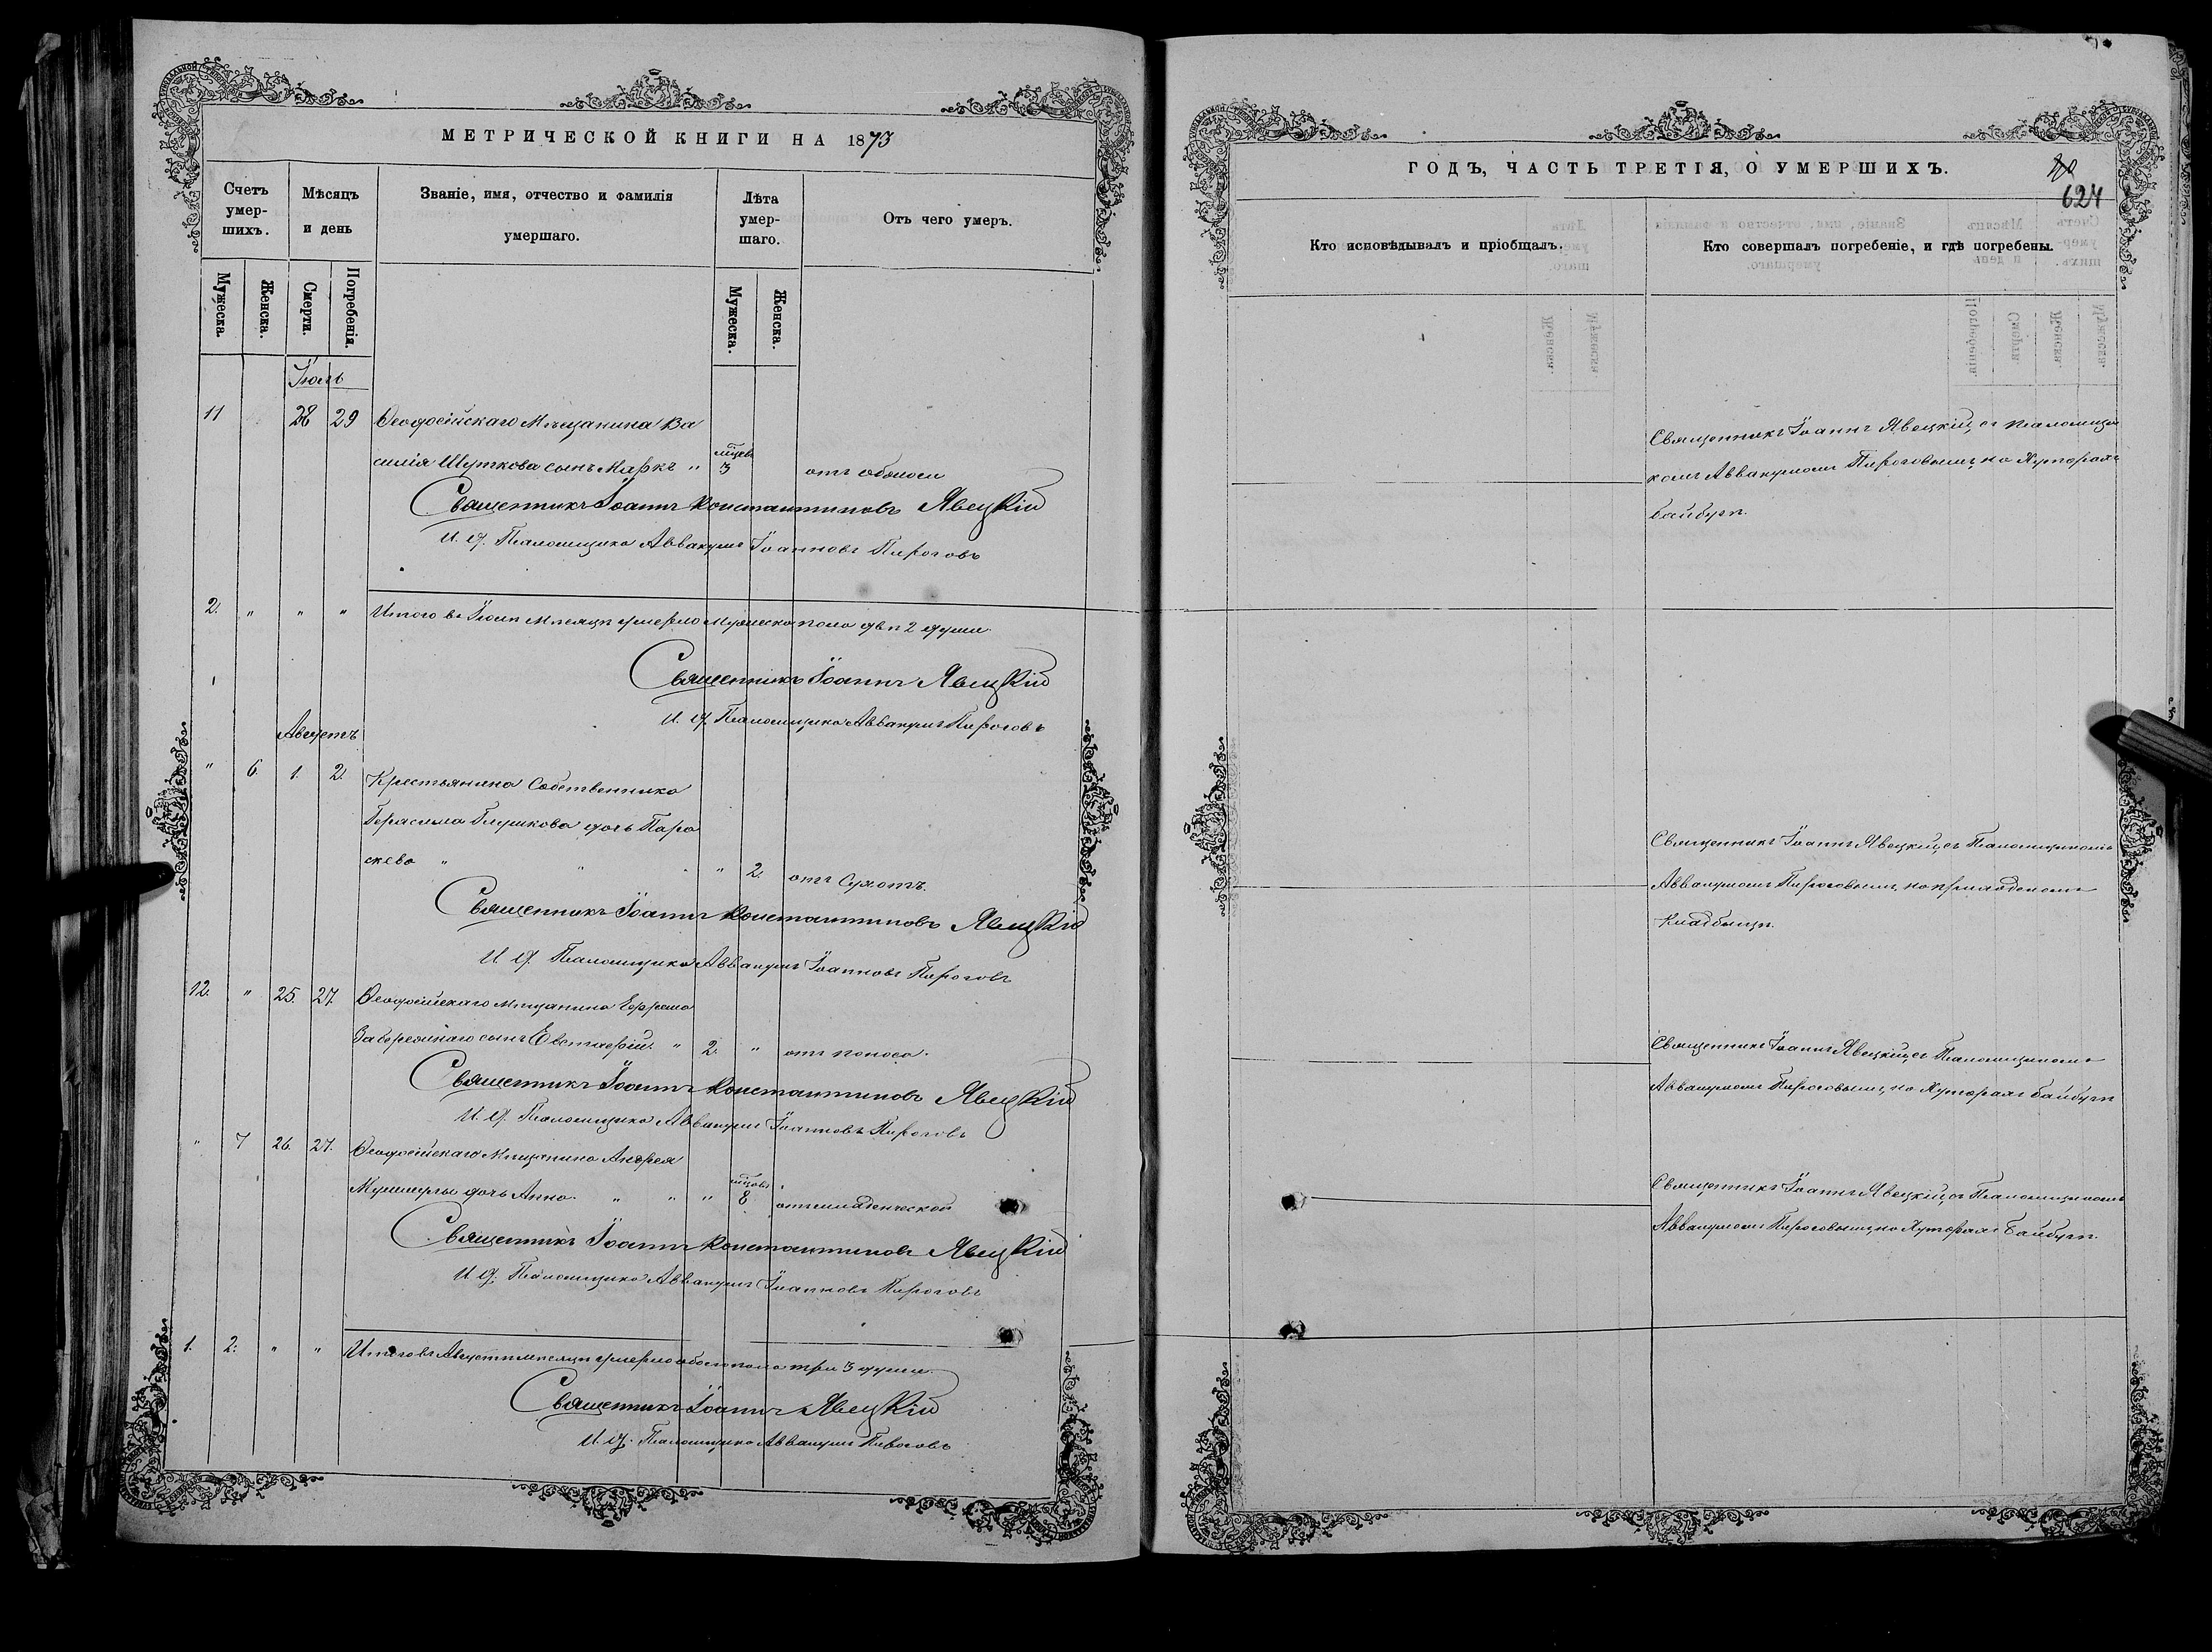 МЕТРИЧЕСКОЙ КНИГИ НА 1873
Счетъ умер-шихъ.
Мѣсяцъ и день
Званіе, имя, отчество и фамилія умершаго.
Лѣта умер-шаго.
Отъ чего умеръ.
Мужеска.
Женска.
Смерти.
Погребенія.
Мужеска.
Женска.
Іюль
11 28 29 Ѳеодосійскаго Мѣщанина Ва
силія Шуткова сынъ Маркъ " 3 отъ
Священникъ Іоаннъ Константиновъ Явецкій
И. д. Псаломщика Аввакумъ Іоанновъ Пироговъ
2. " " " Итого въ Іюлѣ мѣсяцѣ умерло мужеска пола двѣ 2 души.
Священникъ Іоаннъ Явецкій
И. д. Псаломщика Аввакумъ Пироговъ
Августъ
" 6. 1. 2. Крестьянина Собственника
Герасима Глушкова дочь Пара
скева " " " 2. отъ Сухотъ.
Священникъ Іоаннъ Константиновъ Явецкій
И. д. Псаломщика Аввакумъ Іоанновъ Пироговъ
12. " 25. 27. Ѳеодосійскаго Мѣщанина Ефрема
сынъ Евстафій. " 2. " отъ поноса.
Священникъ Іоаннъ Константиновъ Явецкій
И. д. Псаломщика Аввакумъ Іоанновъ Пироговъ
" 7 26. 27. Ѳеодосійскаго Мѣщанина Андрея
дочь Анна. " " " 8 отъ младенческой
Священникъ Іоаннъ Константиновъ Явецкій
И. д. Псаломщика Аввакумъ Іоанновъ Пироговъ
1. 2. " " Итого въ Августѣ мѣсяцѣ умерло обоего пола три 3 души.
Священникъ Іоаннъ Явецкій
И. д. Псаломщика Аввакумъ Пироговъ
ГОДЪ, ЧАСТЬ ТРЕТІЯ, О УМЕРШИХЪ.
624
Кто исповѣдывалъ и пріобщалъ.
Кто совершалъ погребеніе, и гдѣ погребены.
Священникъ Іоаннъ Явецкій, съ Псаломщи
комъ Аввакумомъ Пироговымъ, на Хуторахъ
Байбугѣ.
Священникъ Іоаннъ Явецкій, съ Псаломщикомъ
Аввакумомъ Пироговымъ, на приходскомъ
Кладбищѣ.
Священникъ Іоаннъ Явецкій, съ Псаломщикомъ
Аввакумомъ Пироговымъ, на Хуторахъ Байбугѣ
Священникъ Іоаннъ Явецкій, съ Псаломщикомъ
Аввакумомъ Пироговымъ, на Хуторахъ Байбугѣ.